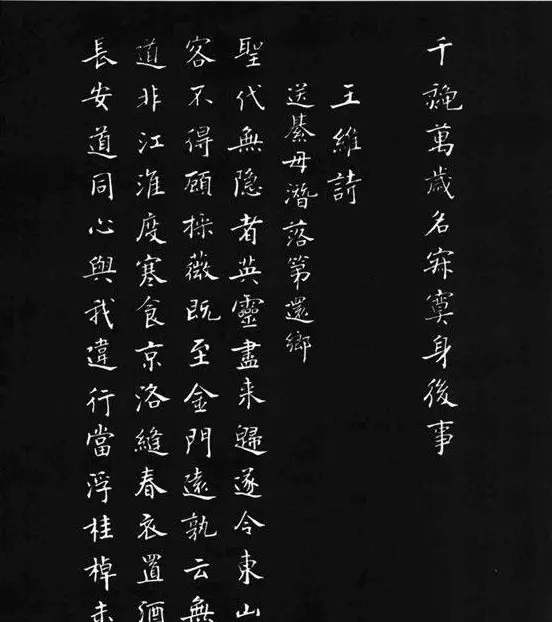 千穐萬歲名寂寞身後事
王維詩
送綦毋潛落第還鄉
聖代無隐者英靈盡来歸遂令東山
客不得顧採薇既至金門遠孰云無
道非江淮度寒食京洛縫春衣置酒
長安道同心與我違行當浮桂棹未